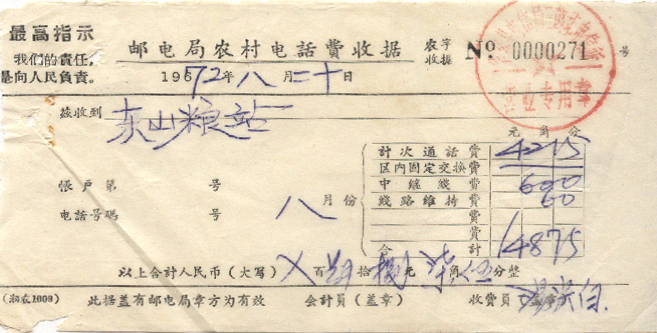 最高指示
我们的責任,
是向人民負責。
邮电局农村电話費收据
农字
收据
№ 0000271 号
1972年八月二十日
兹收到 东山粮站
元角分
計次通話費 4215
区内固定交換費
中继綫費 600
綫路維持費 60
費
費
合計 4875
帳戶第 号
电話号碼 号
八月份
以上合計人民币(大写)X百肆拾捌元柒角伍分整
(湘农1009)
此据盖有邮电局章方为有效
会計員(盖章)
收費員
营业专用章